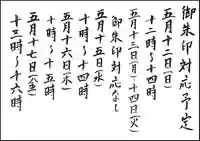 御朱印対応予定
五月十二日(日)
十二時〜十四時
五月十三日(月)十四日(火)
御朱印対応なし
五月十五日(水)
十時〜十四時
五月十六日(木)
十時〜十五時
五月十七日(金)
十三時〜十六時